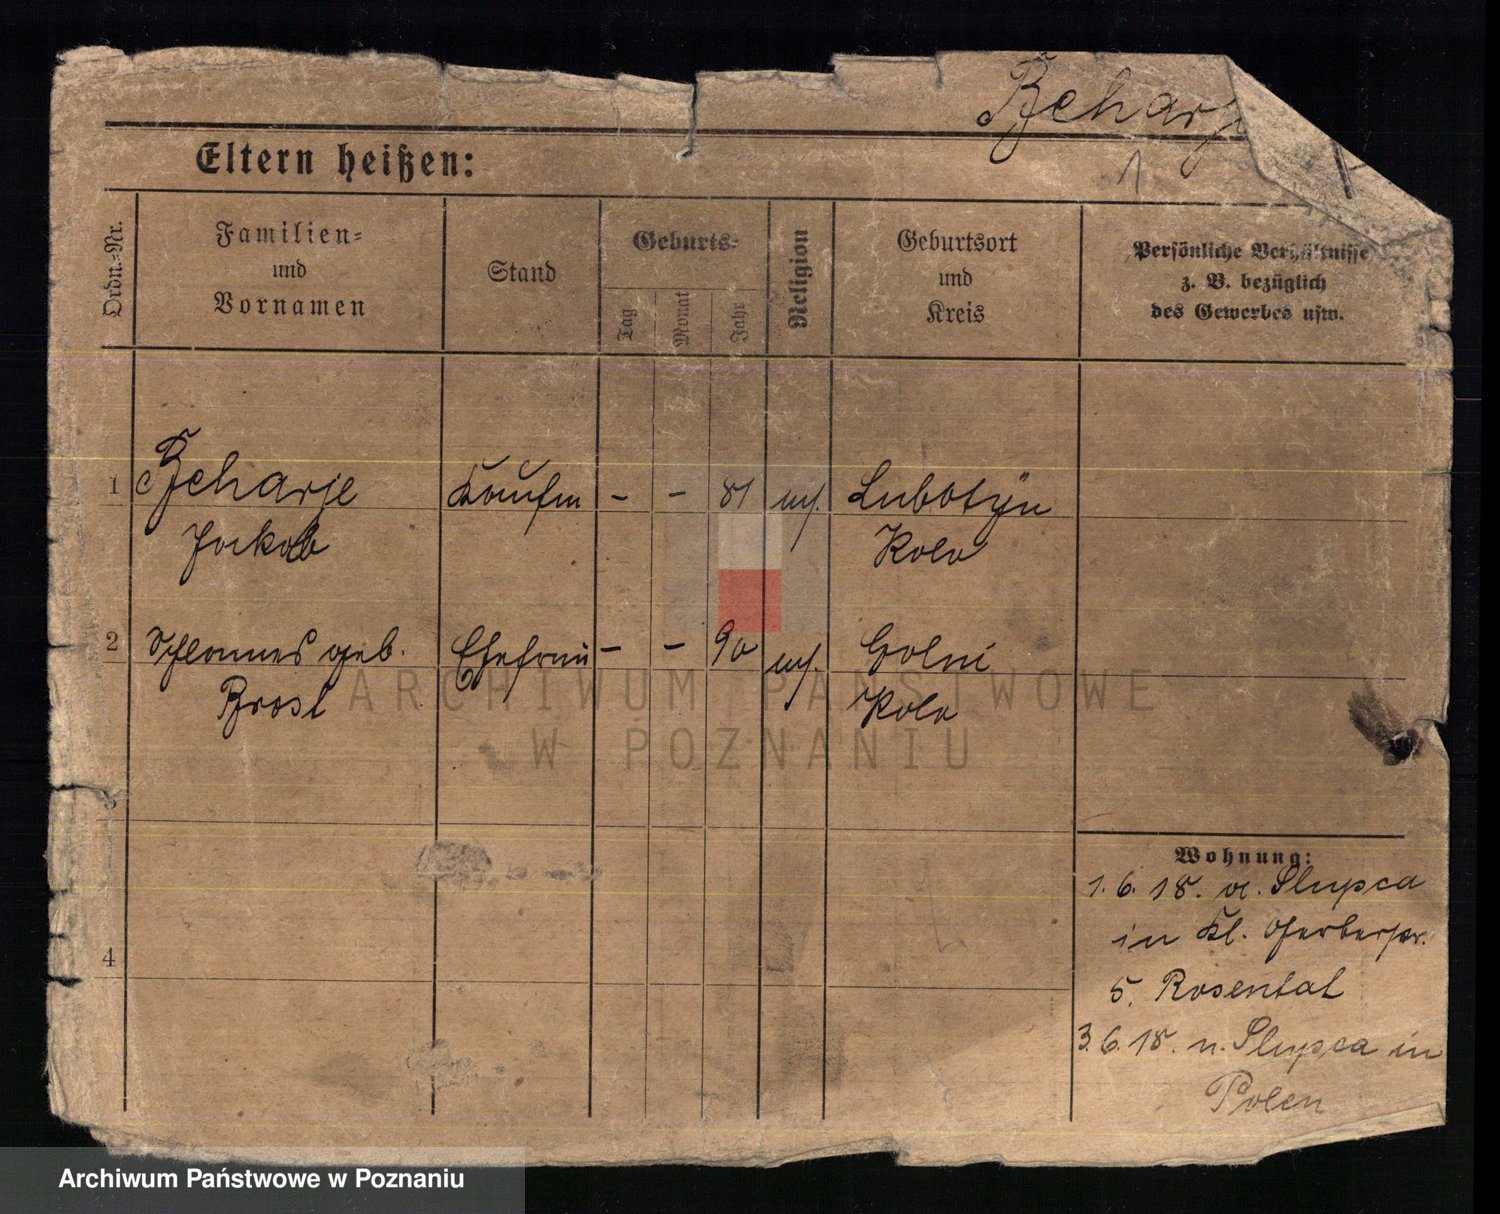 Bcharje
1
Eltern heißen:
Ordn.-Nr.
Familien-
und
Vornamen
Stand
Geburts-
Tag
Monat
Jahr
Religion
Geburtsort
und
Kreis
Persönliche Verhältnisse
z. B. bezüglich
des Gewerbes usw.
1 Bcharje Kaufm - - 81 mos. Lubotyn
Jakob Kolo
2 geb. Ehefrau - - 90 mos.
Kolo
3
4
Wohnung:
1.6.18. v. Slupca
in Kl. Gerberstr.
5. Rosental
3.6.18. n. Slupca in
Polen
ARCHIWUM PAŃSTWOWE
W POZNANIU
Archiwum Państwowe w Poznaniu